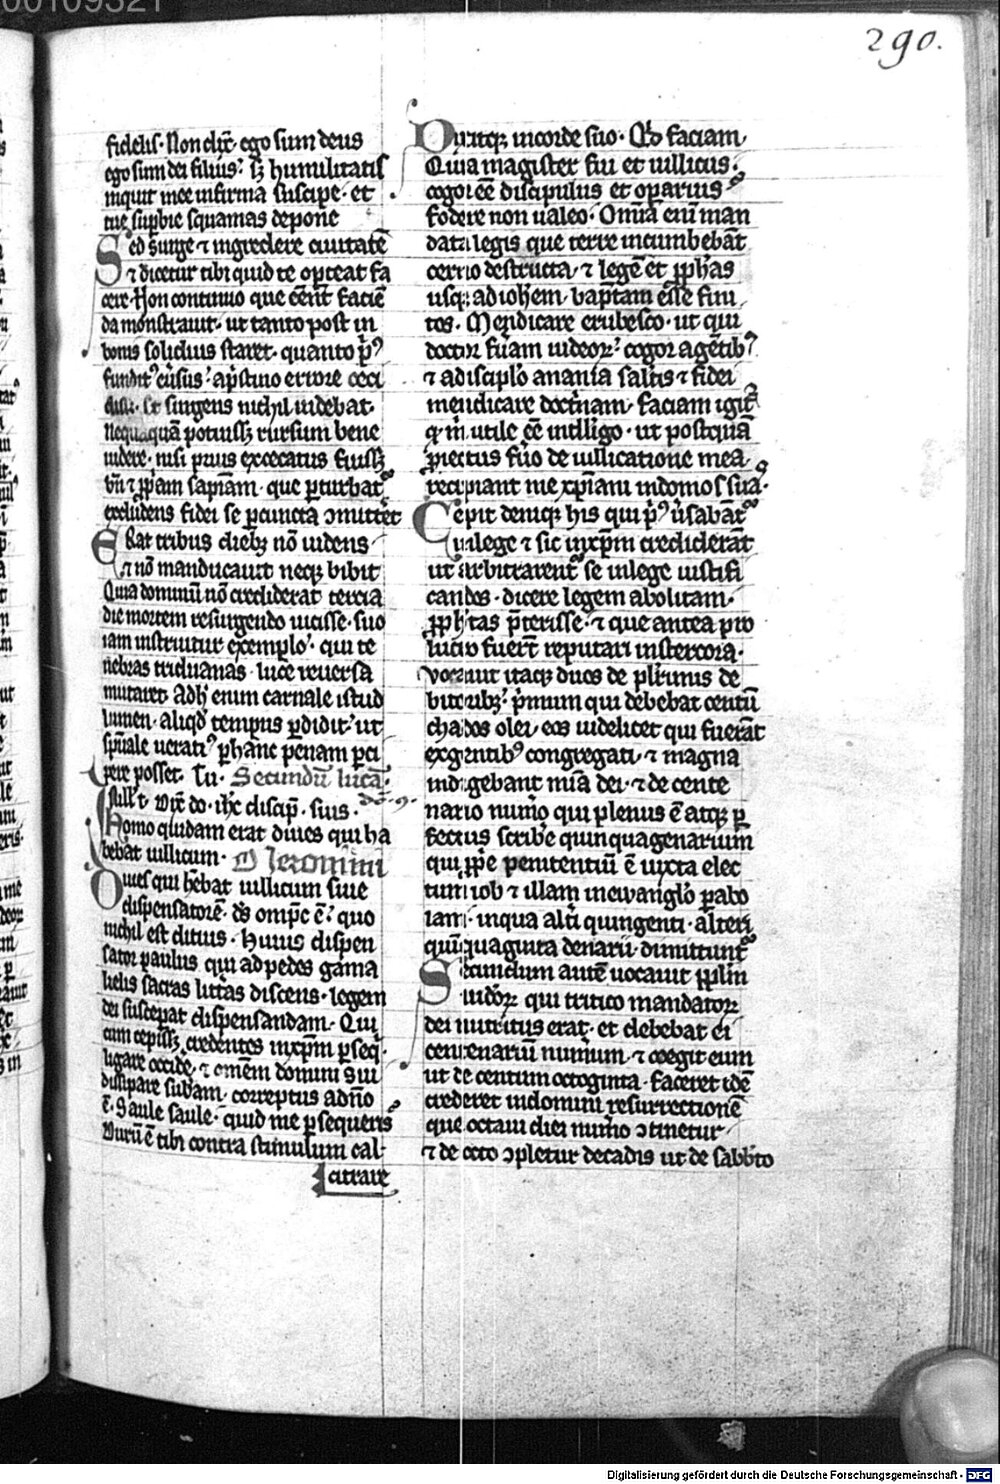 290.
fidelis. Non dic̄. ego sum deus
ego sum dei filius: sꝫ humilitatis
inquit mee infirma suscipe. et
tue supbie squamas depone
Sed surge ⁊ ingredere ciuitatē
⁊ dicetur tibi quid te oporteat fa
cere. Non continuo que eēnt faciē
da monstrauit. ut tanto post in
bonis solidius staret. quanto p̄ꝰ
errore ceci
surgens nichil uidebat.
Nequaquā potuissꝫ rursum bene
uidere. nisi prius excecatus fuissꝫ
ꝓpam sapīam. que pturbat.
excludens fidei se p cuncta ↄmittēt
Erat tribus diebꝫ nō uidens
⁊ nō manducauit neqꝫ bibit
Quia dominū nō crediderat tercia
die mortem resurgendo uicisse. suo
iam instruitur exemplo. qui te
nebras triduanas. luce reuersa
mutaret. Adh̓ enim carnale istud
lumen. aliqd̓ tempus pdidit. ut
sp̄uale p hanc penam pci
pere posset. Secundū lucā.
In ill̓ t. Dix̄ do. ih̄c discip̄. suis.
homo quidam erat diues qui ha
bebat uillicum. Ieronimi
Diues qui h̄ebat uillicum siue
dispensatorē. ds̄ omp̄c ē. quo
nichil est ditius. Huius dispen
sator paulus qui ad pedes gama
lielis sacras litt̄as discens. legem
dei susceperat dispensandam. Qui
cum cepissꝫ credentes in xp̄m pseqi.
ligare occide. ⁊ omēm domini sui
dissipare subam. correptus a dn̄o
ē. Saule saule. quid me psequeris
Durū ē tibi contra stimulum cal
citrare
Dixitqꝫ in corde suo. Qd̓ faciam
Quia magister fui et uillicus.
cogor eē discipulus et oparius
fodere non ualeo. Omīa enī man
data legis que terre incumbebāt
cerno destructa. ⁊ legē et ꝓph̄as
usqꝫ ad ioh̄em baptam esse fini
tos. Mendicare erubesco. ut qui
doctor fuam iudeoꝝ. cogor a gētibꝰ
⁊ a discipl̓o anania salutis ⁊ fidei
mendicare doctīnam. faciam igit̄
q̓ m̓ utile eē intelligo. ut postquā
ꝓiectus fuo de uillicatione mea.
recipiant me xp̄iani in domos suā.
Cepit deniqꝫ his qui p̓ꝰ ūsabāt̄
in lege ⁊ sic in xp̄m crediderāt
ut arbitrarent̄ se in lege iustifi
candos. dicere legem abolitam.
ꝓph̄tas p̄terisse. ⁊ que antea pro
lucro fuer̄t reputari in stercora.
Vocauit itaqꝫ duos de pl̓rimis de
bitoribꝫ. p̓mum qui debebat centū
chados olei. eos uidelicet qui fuerāt
ex gentibꝰ congregati. ⁊ magna
indigebant mīa dei. ⁊ de cente
nario num̓o qui plenus ē atqꝫ p
fectus scribe quinquagenarium
qui ꝓp̄e penitentiū ē iuxta
iob ⁊ illam in ewanglo̓ pabo
lam. in qua alt̓i quingenti. alteri
quīquaginta denarii. dimittunt̄
Secundum autē uocauit ppl̓m
iudoꝝ qui tritico mandatoꝝ
dei nutritus erat. et debebat ei
centenariū num̓um. ⁊ coegit eum
ut de centum octoginta. faceret idē
crederet in domini resurrectionē
que octaui diei num̓o ↄtinetur.
⁊ de octo ↄpletur decadis ut de sabb̄to
Digitalisierung gefördert durch die Deutsche Forschungsgemeinschaft - DFG